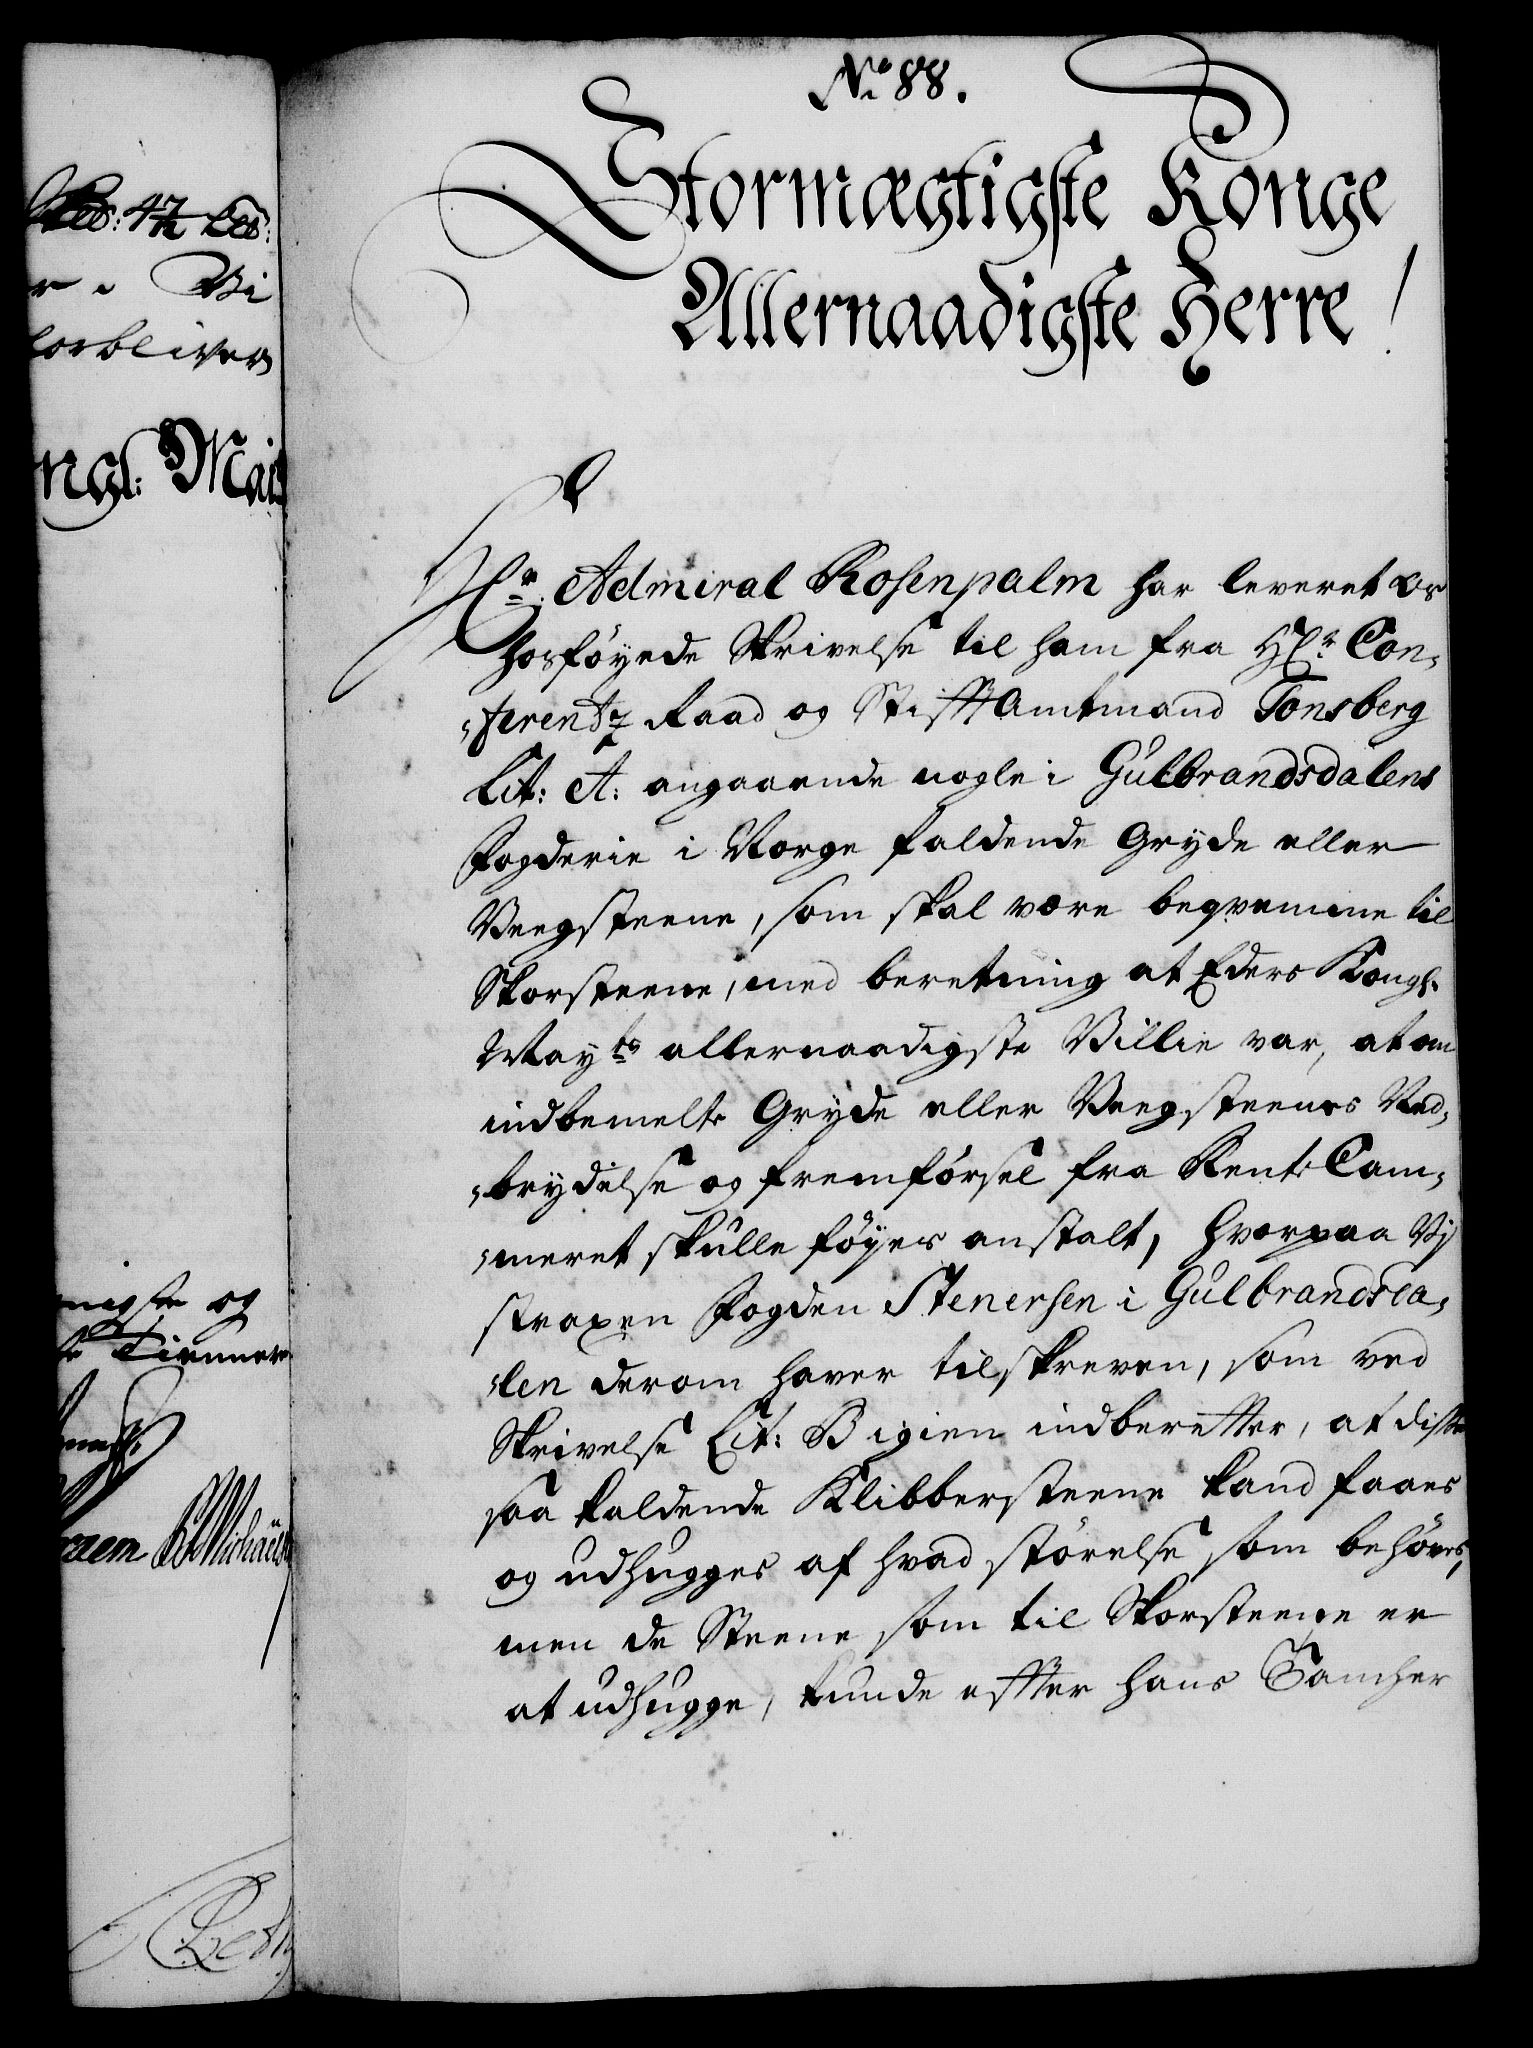 No 88.
Stormægtigste Konge
Allernaadigste Herre!
Hr. Admiral Rosenpalm har leveret os
hosføyede Skrivelse til ham fra Hr. Con,
,ferentz Raad og Stifftamtmand Tonsberg
Lit: A: angaaende nogle i Gulbrandsdalens
Fogderie i Norge faldende Gryde eller
Veegsteene, som skal være beqvemme til
Skorsteene, med beretning at Eders Kongl.
Mayts allernaadigste Villie var, at om
indbemelte Gryde eller Veegsteenes Ned,
,brydelse og fremførsel fra Rente Cam,
,meret skulle føyes anstalt, hvorpaa Vi
straxen Fogden Stenersen i Gulbrandsda,
,len derom haver tilskreven, som ved
Skrivelse Lit: B igien indberetter, at disse
saa kaldende Klibbersteene kand faaes
og udhugges af hvad størelse som behøves,
men de Steene som til Skorsteene er
at udhugge, kunde effter hans Tancher
r i Vi
forbliver
ngl: Maits
nigste og
Tienner